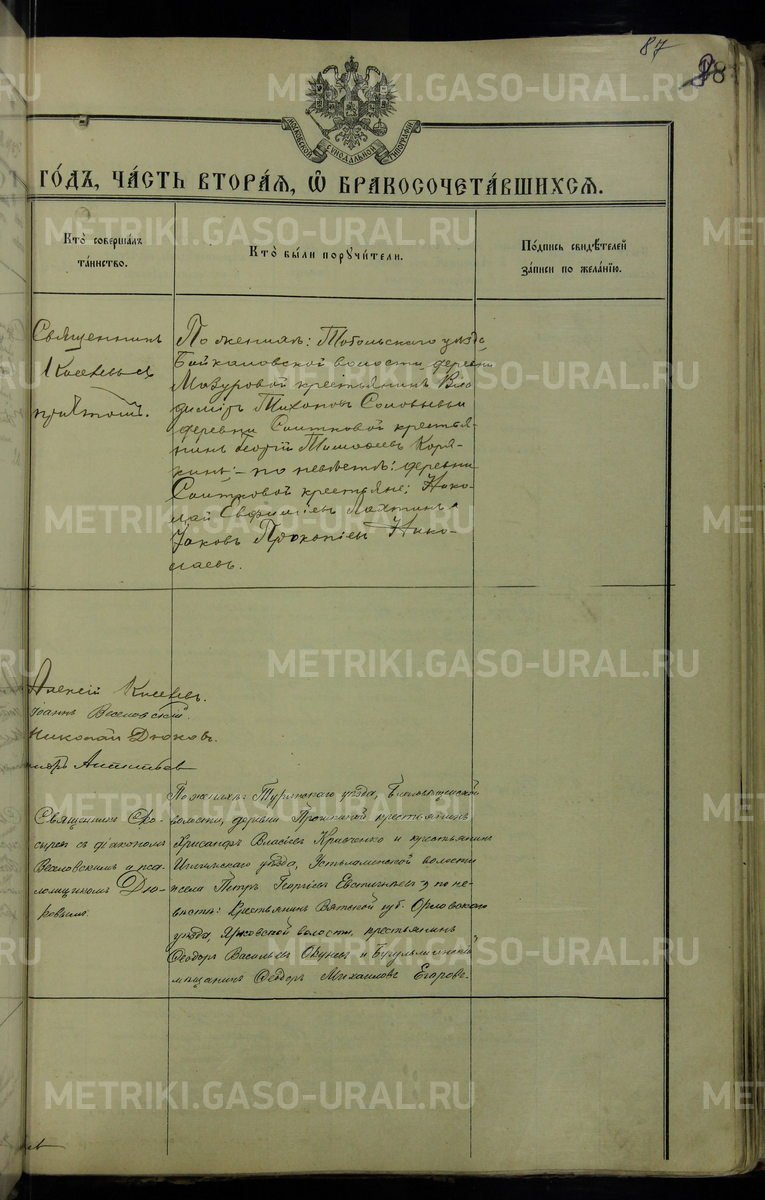 87
МОСКОВСКОЙ СѴНОДАЛЬНОЙ ТИПОГРАФІИ
ГО́ДЪ, ЧА́СТЬ ВТОРА́Я, Ѽ БРАКОСОЧЕТА́ВШИХСЯ.
Кто̀ соверша́лъ
та́инство.
Кто̀ бы́ли порꙋчи́тели.
По́дпись свидѣ́телей
за́писи по жела́нїю.
Священникъ
Киселевъ съ
причтомъ.
По женихѣ: Тобольскаго уѣзда
Байкаловской волости деревни
Мазуровой крестьянинъ Вла
димiръ Тихоновъ Соловьевъ и
деревни Саитковой крестья-
нинъ Георгiй Тимофеевъ Коря-
кинъ; - по невѣстѣ: деревни
Саитковой крестьяне: Нико-
лай Евфимiевъ Лахтинъ и
Яковъ Прокопiевъ Нико-
лаевъ.
Алексiй Киселевъ.
Iоаннъ Веселовскiй.
Николай Дюковъ.
Священникъ
съ дiакономъ
Веселовскимъ и пса-
ломщикомъ Дю-
ковымъ.
По женихѣ: Туринскаго уѣзда,
волости, деревни крестьянинъ
Хрисанфъ Власiевъ Кривченко и крестьянинъ
Ишимскаго уѣзда, Устьламенской волости
села Петръ Георгiевъ Евстигнѣевъ; по не-
вѣстѣ: Крестьянинъ Вятской губ. Орловскаго
уѣзда, волости, крестьянинъ
Ѳеодоръ Васильевъ Окуневъ и Бугульминскiй
мѣщанинъ Ѳеодоръ Михаиловъ Егоровъ.
METRIKI.GASO-URAL.RU